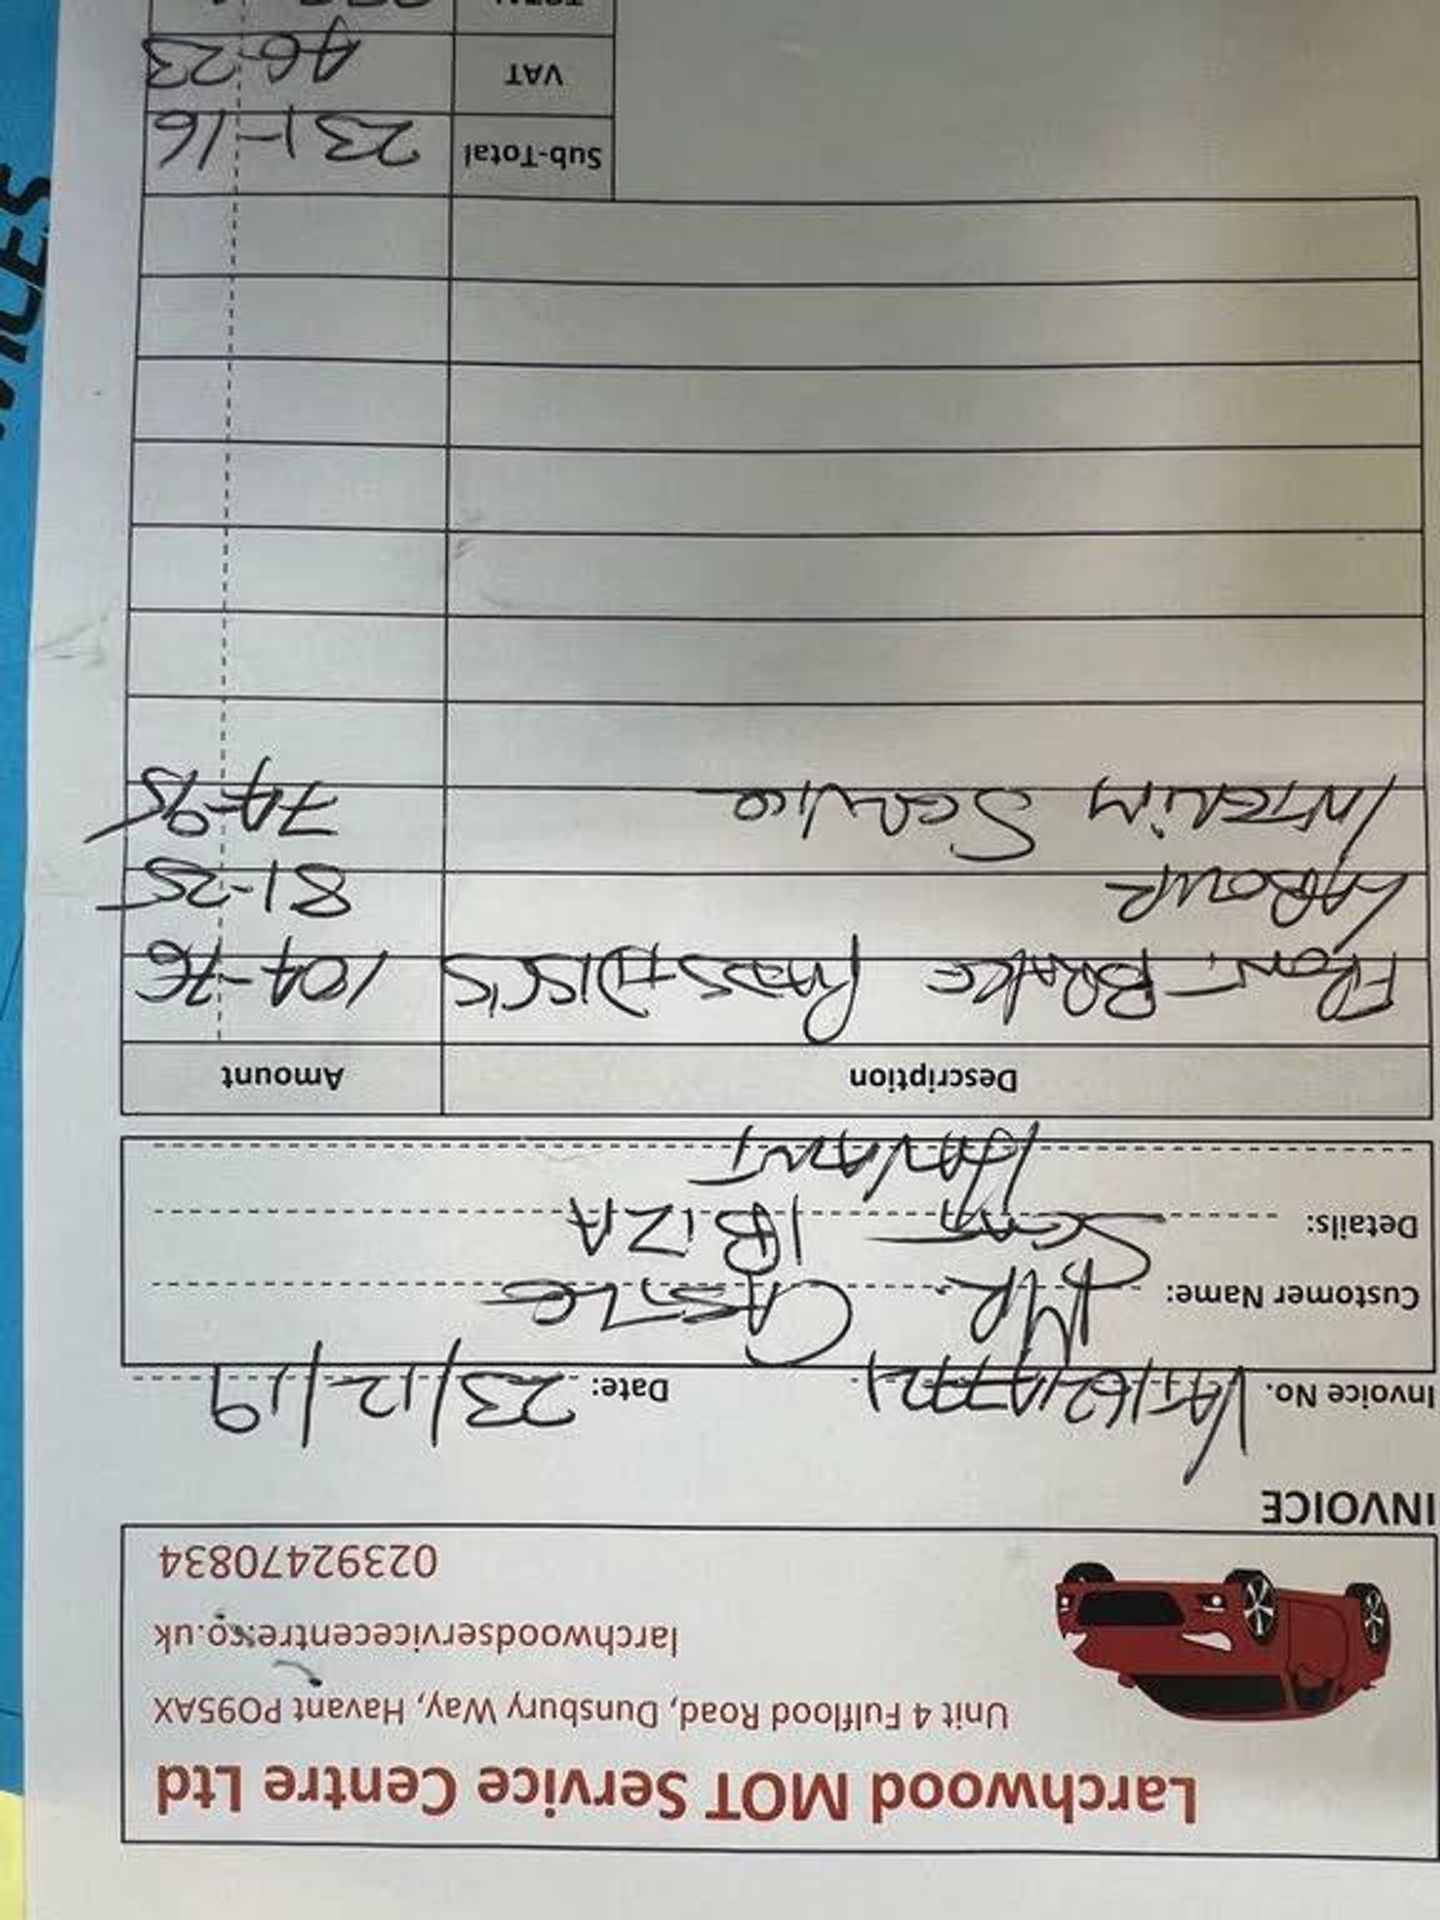 Larchwood MOT Service Centre Ltd
Unit 4 Fulflood Road, Dunsbury Way, Havant PO95AX
larchwoodservicecentre.co.uk
02392470834
INVOICE
Invoice No. Date: 23/12/19
Customer Name: MR CASTLE
Details: SEAT IBIZA
HAVANT
Description Amount
FRONT BRAKE PADS + DISCS 104-76
LABOUR 81-25
INTERIM SERVICE 74-95
Sub-Total 231-16
VAT 46-23
TOTAL
VICES